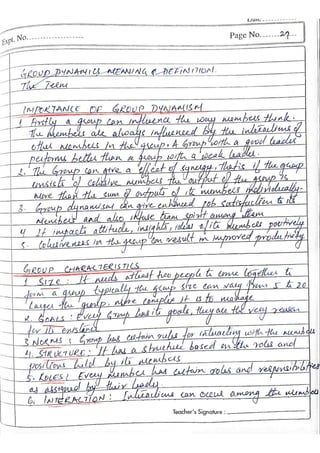 Date.............
Expt. No............... Page No. ....... 29...
GROUP DYNAMICS MEANING & DEFINITION.
The Term
IMPORTANCE OF GROUP DYNAMISM
1 Firstly a group can influence the way members think.
the members are always influenced by the interactions of
other members in the group. A Group with a good leader
performs better than a group with a weak leader.
2. The Group can give a effect of synergy, that is if the group
consists of cohesive members the output of the group is
more than the sum of outputs of its members individually.
3. Group dynamism can give enhanced job satisfaction to its
members and also infuse team spirit among them
4 It impacts attitude, insights, ideas of its members positively
5. Cohesiveness in the group can result in improved productivity
GROUP CHARACTERISTICS
1 SIZE : It needs atleast two people to come together to
form a group typically the group size can vary from 5 to 20
larger the group. more complex it is to manage
2. GOALS : Every Group has its goals, they are the very reason
for its
3 NORMS : Group has certain rules for interacting with the members
4. STRUCTURE : It has a structure based on the roles and
positions held by its members
5. ROLES : Every Member has certain roles and responsibilities
as assigned by their leader
6. INTERACTION : Interactions can occur among the members
Teacher's Signature : ______________